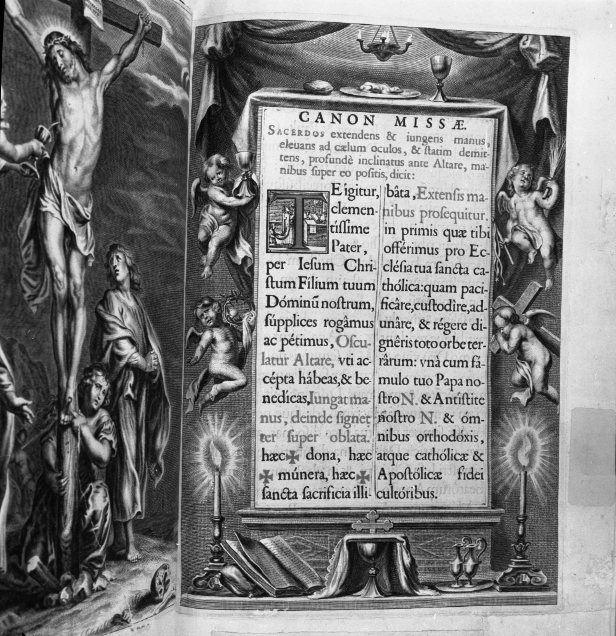 CANON MISSÆ.
SACERDOS extendens & iungens manus,
eleuans ad cælum oculos, & statim demit-
tens, profundè inclinatus ante Altare, ma-
nibus super eo positis, dicit:
TE igitur,
clemen-
tissime
Pater,
per Iesum Chri-
stum Filium tuum
Dóminũ nostrum,
súpplices rogâmus
ac pétimus, Oscu-
latur Altare, vti ac-
cépta hábeas, & be-
nedicas, Iungat ma-
nus, deinde signet
ter super oblata.
hæc ✠ dona, hæc
✠ múnera, hæc ✠
sancta sacrificia illi-
bâta, Extensis ma-
nibus prosequitur.
in primis quæ tibi
offérimus pro Ec-
clésia tua sancta ca-
thólica: quam paci-
ficâre, custodîre, ad-
unâre, & régere di-
gnêris toto orbe ter-
rârum: vnà cum fá-
mulo tuo Papa no-
stro N. & Antistite
nostro N. & óm-
nibus orthodóxis,
atque cathólicæ &
Apostólicæ fidei
cultóribus.